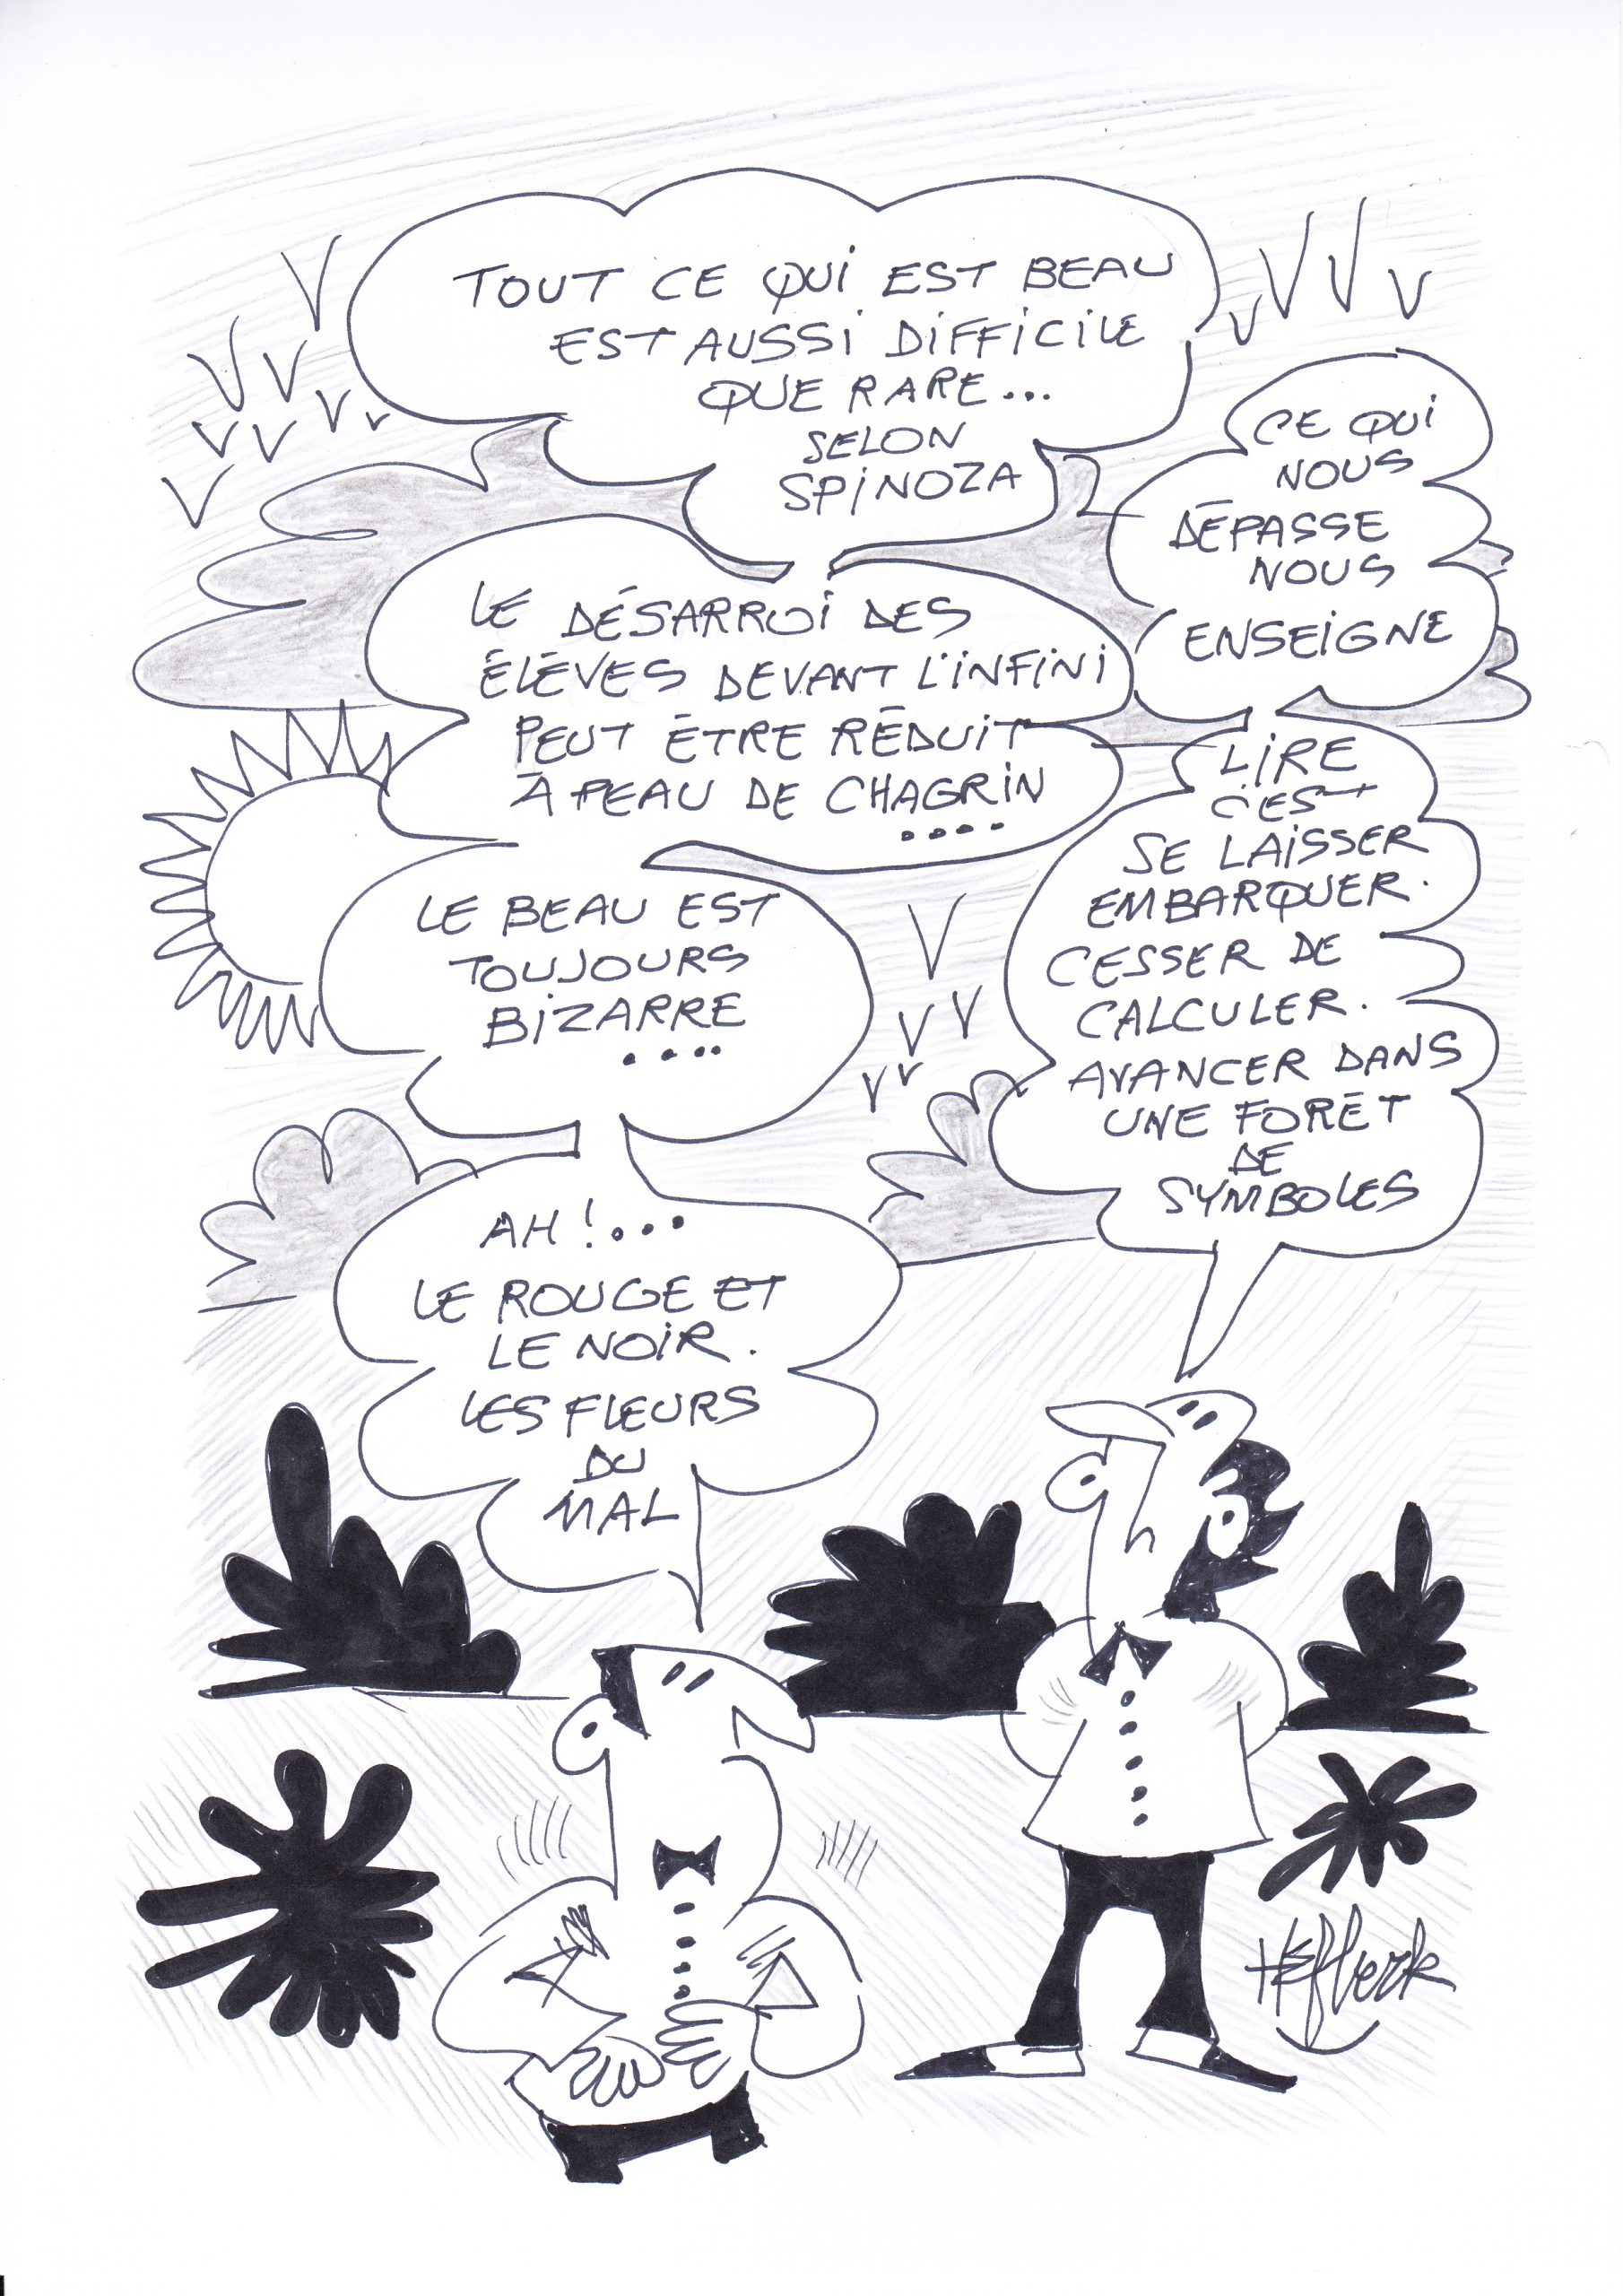 TOUT CE QUI EST BEAU
EST AUSSI DIFFICILE
QUE RARE...
SELON
SPINOZA
LE DÉSARROI DES
ÉLÈVES DEVANT L'INFINI
PEUT ÊTRE RÉDUIT
À PEAU DE CHAGRIN
....
LE BEAU EST
TOUJOURS
BIZARRE
....
AH!...
LE ROUGE ET
LE NOIR.
LES FLEURS
DU
MAL
CE QUI
NOUS
DÉPASSE
NOUS
ENSEIGNE
LIRE
C'EST
SE LAISSER
EMBARQUER.
CESSER DE
CALCULER.
AVANCER DANS
UNE FORÊT
DE
SYMBOLES